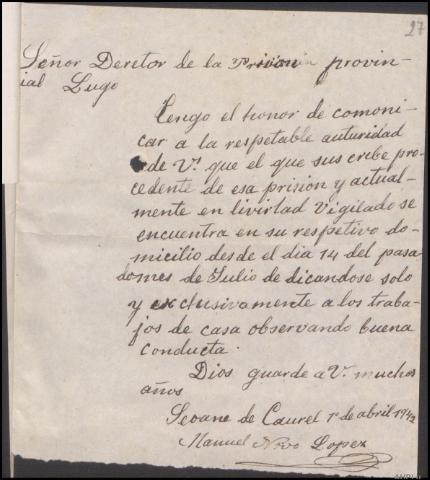 27
Señor Deretor de la Prision provin-
ial Lugo
Tengo el honor de comoni-
car a la respetable auturidad
de V. que el que sus cribe pro-
cedente de esa prision y actual-
mente en livirtad Vigilado se
encuentra en su respetivo do-
micilio desde el dia 14 del pasa
domes de Julio de dicandose solo
y exclusivamente a los traba-
jos de casa observando buena
conducta.
Dios guarde a V. muchos
años
Seoane de Caurel 1º de abril 1942
Manuel Novo Lopez